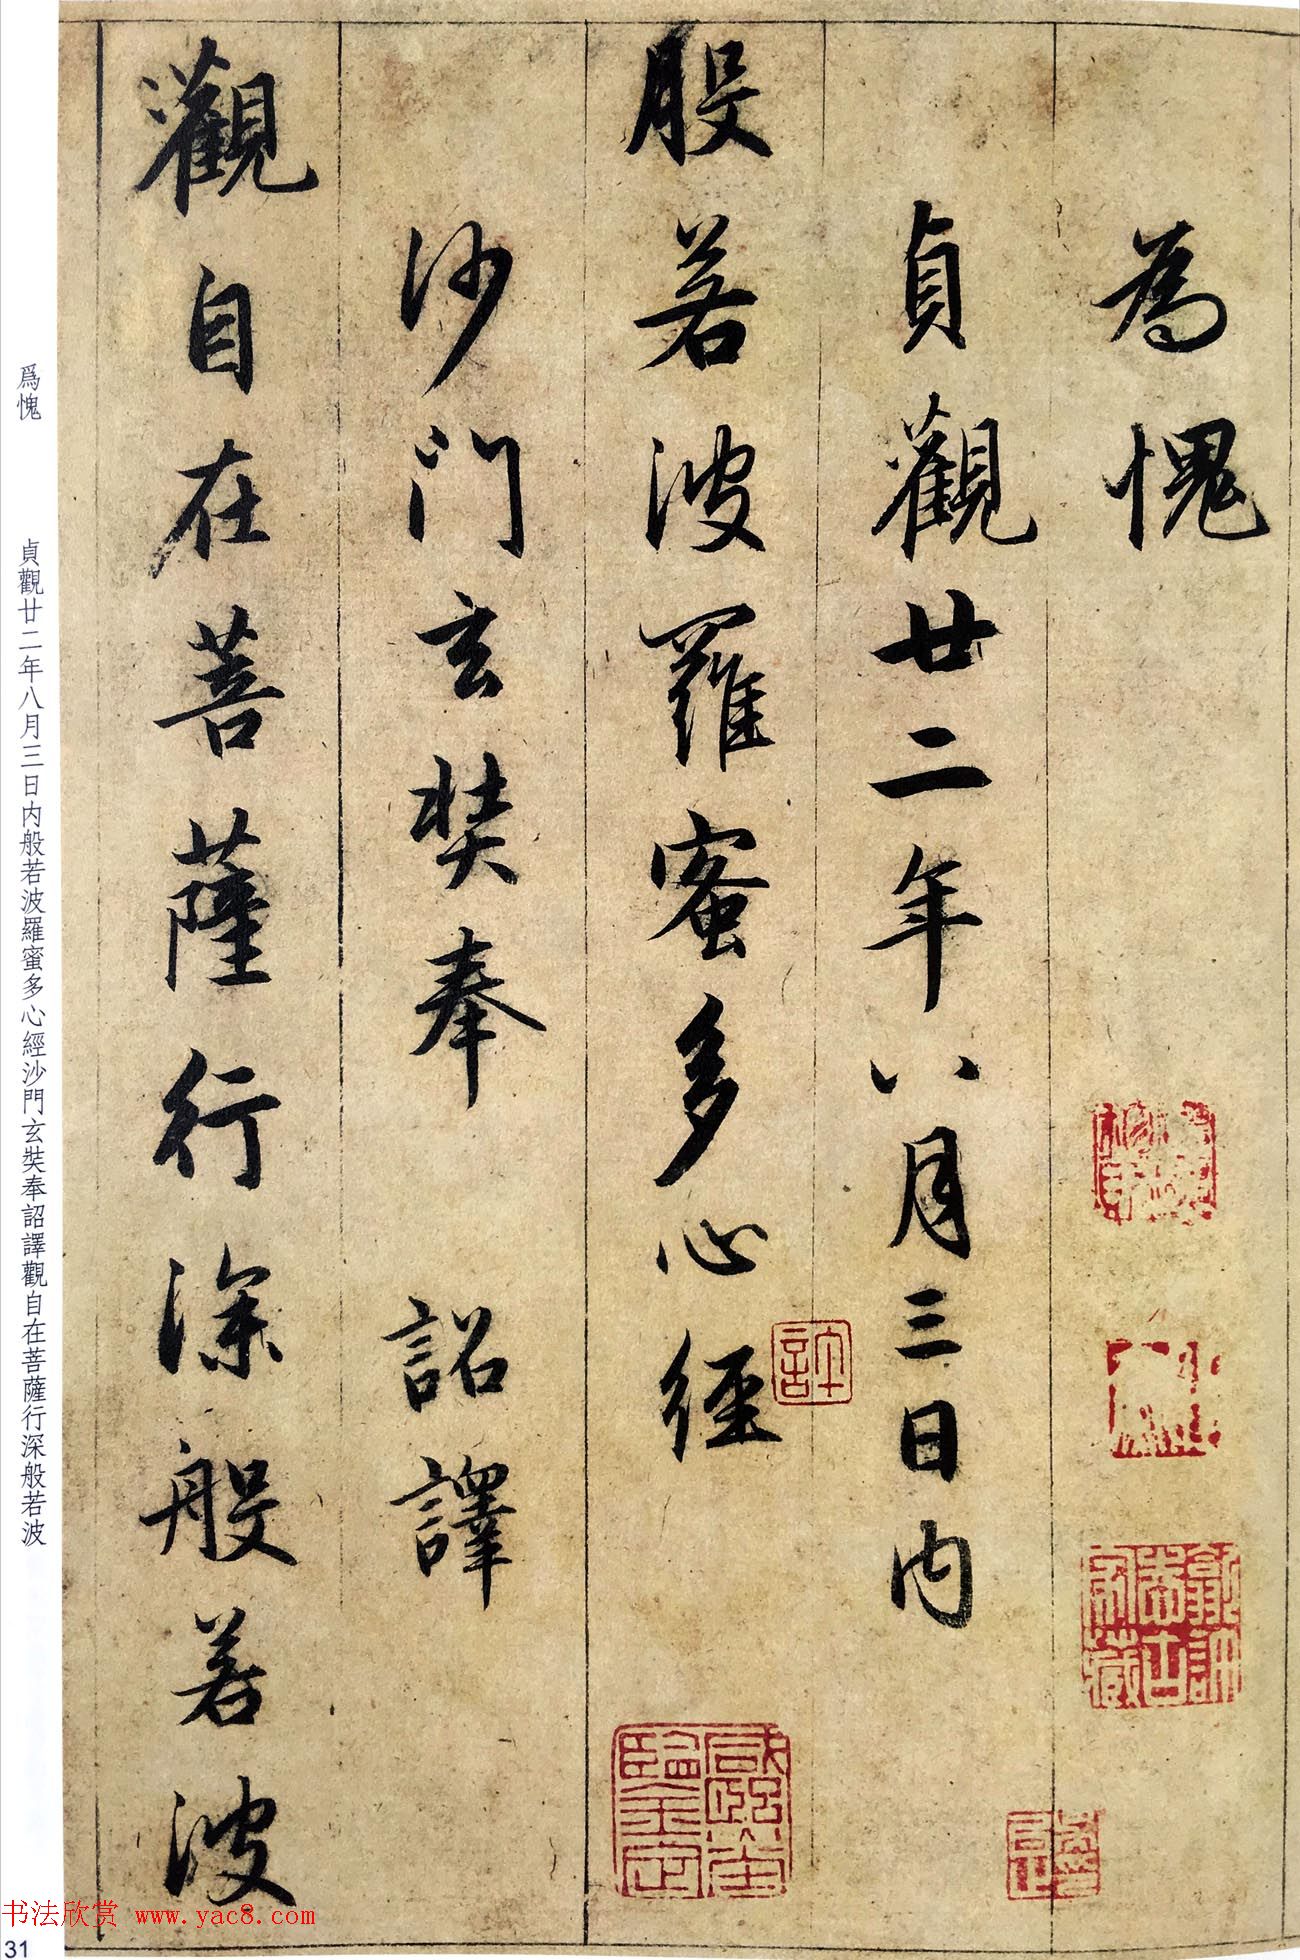 為愧
貞觀廿二年八月三日内
般若波羅蜜多心經
沙門玄奘奉 詔譯
觀自在菩薩行深般若波
爲愧 貞觀廿二年八月三日内般若波羅蜜多心經沙門玄奘奉詔譯觀自在菩薩行深般若波
书法欣赏 www.yac8.com
31